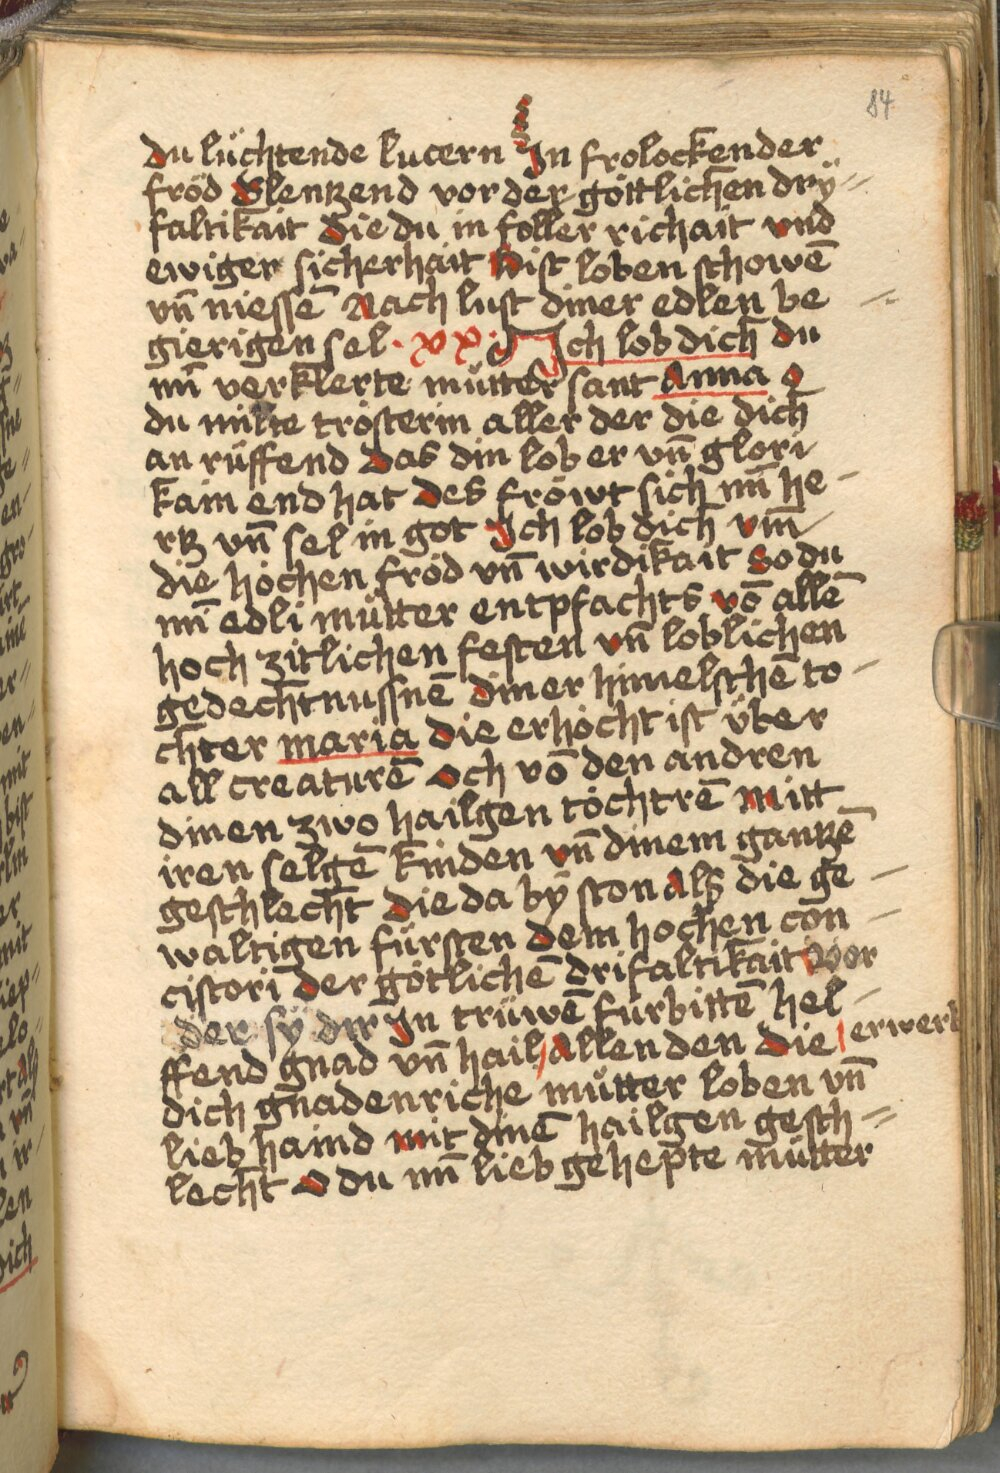 84
du lüchtende lucern In frolockender
fröd Glentzend vor der göttlichen drÿ⸗
faltikait Die du in foller richait vnd
ewiger sicherhait Bist loben schowē
vn̄ niessē Nach lust diner edlen be
gierigen sel · xx · Ich lob dich du
min̄ verklerte mütter sant Anna O
du milte trösterin aller der die dich
an rüffend Das din lob er vn̄ glori
kain end hat Des fröwt sich min̄ he-
rtz vn̄ sel in got Ich lob dich vm̄
die höchen fröd vn̄ wirdikait So du
min̄ edli mütter entpfachts vō allē
hoch zitlichen festen vn̄ loblichen
gedechtnussnē diner himelschē to-
chter maria Die erhöcht ist über
all creaturē Och vō den andren
dinen zwo hailgen töchtrē mitt
iren selgē kinden vn̄ dinem gantzē
geschlecht Die da bÿ ston Als die ge-
waltigen fürsten dem hochen con-
cistori Der götlichē drifaltikait Vor
der sÿ dir In trüwē fürbittē hel-
ffend gnad vn̄ hail Allen den Die erwerb
dich gnadenriche mütter loben vn̄
lieb haind mit dinē hailgen gesch⸗
lecht O du min̄ lieb gehepte mütter